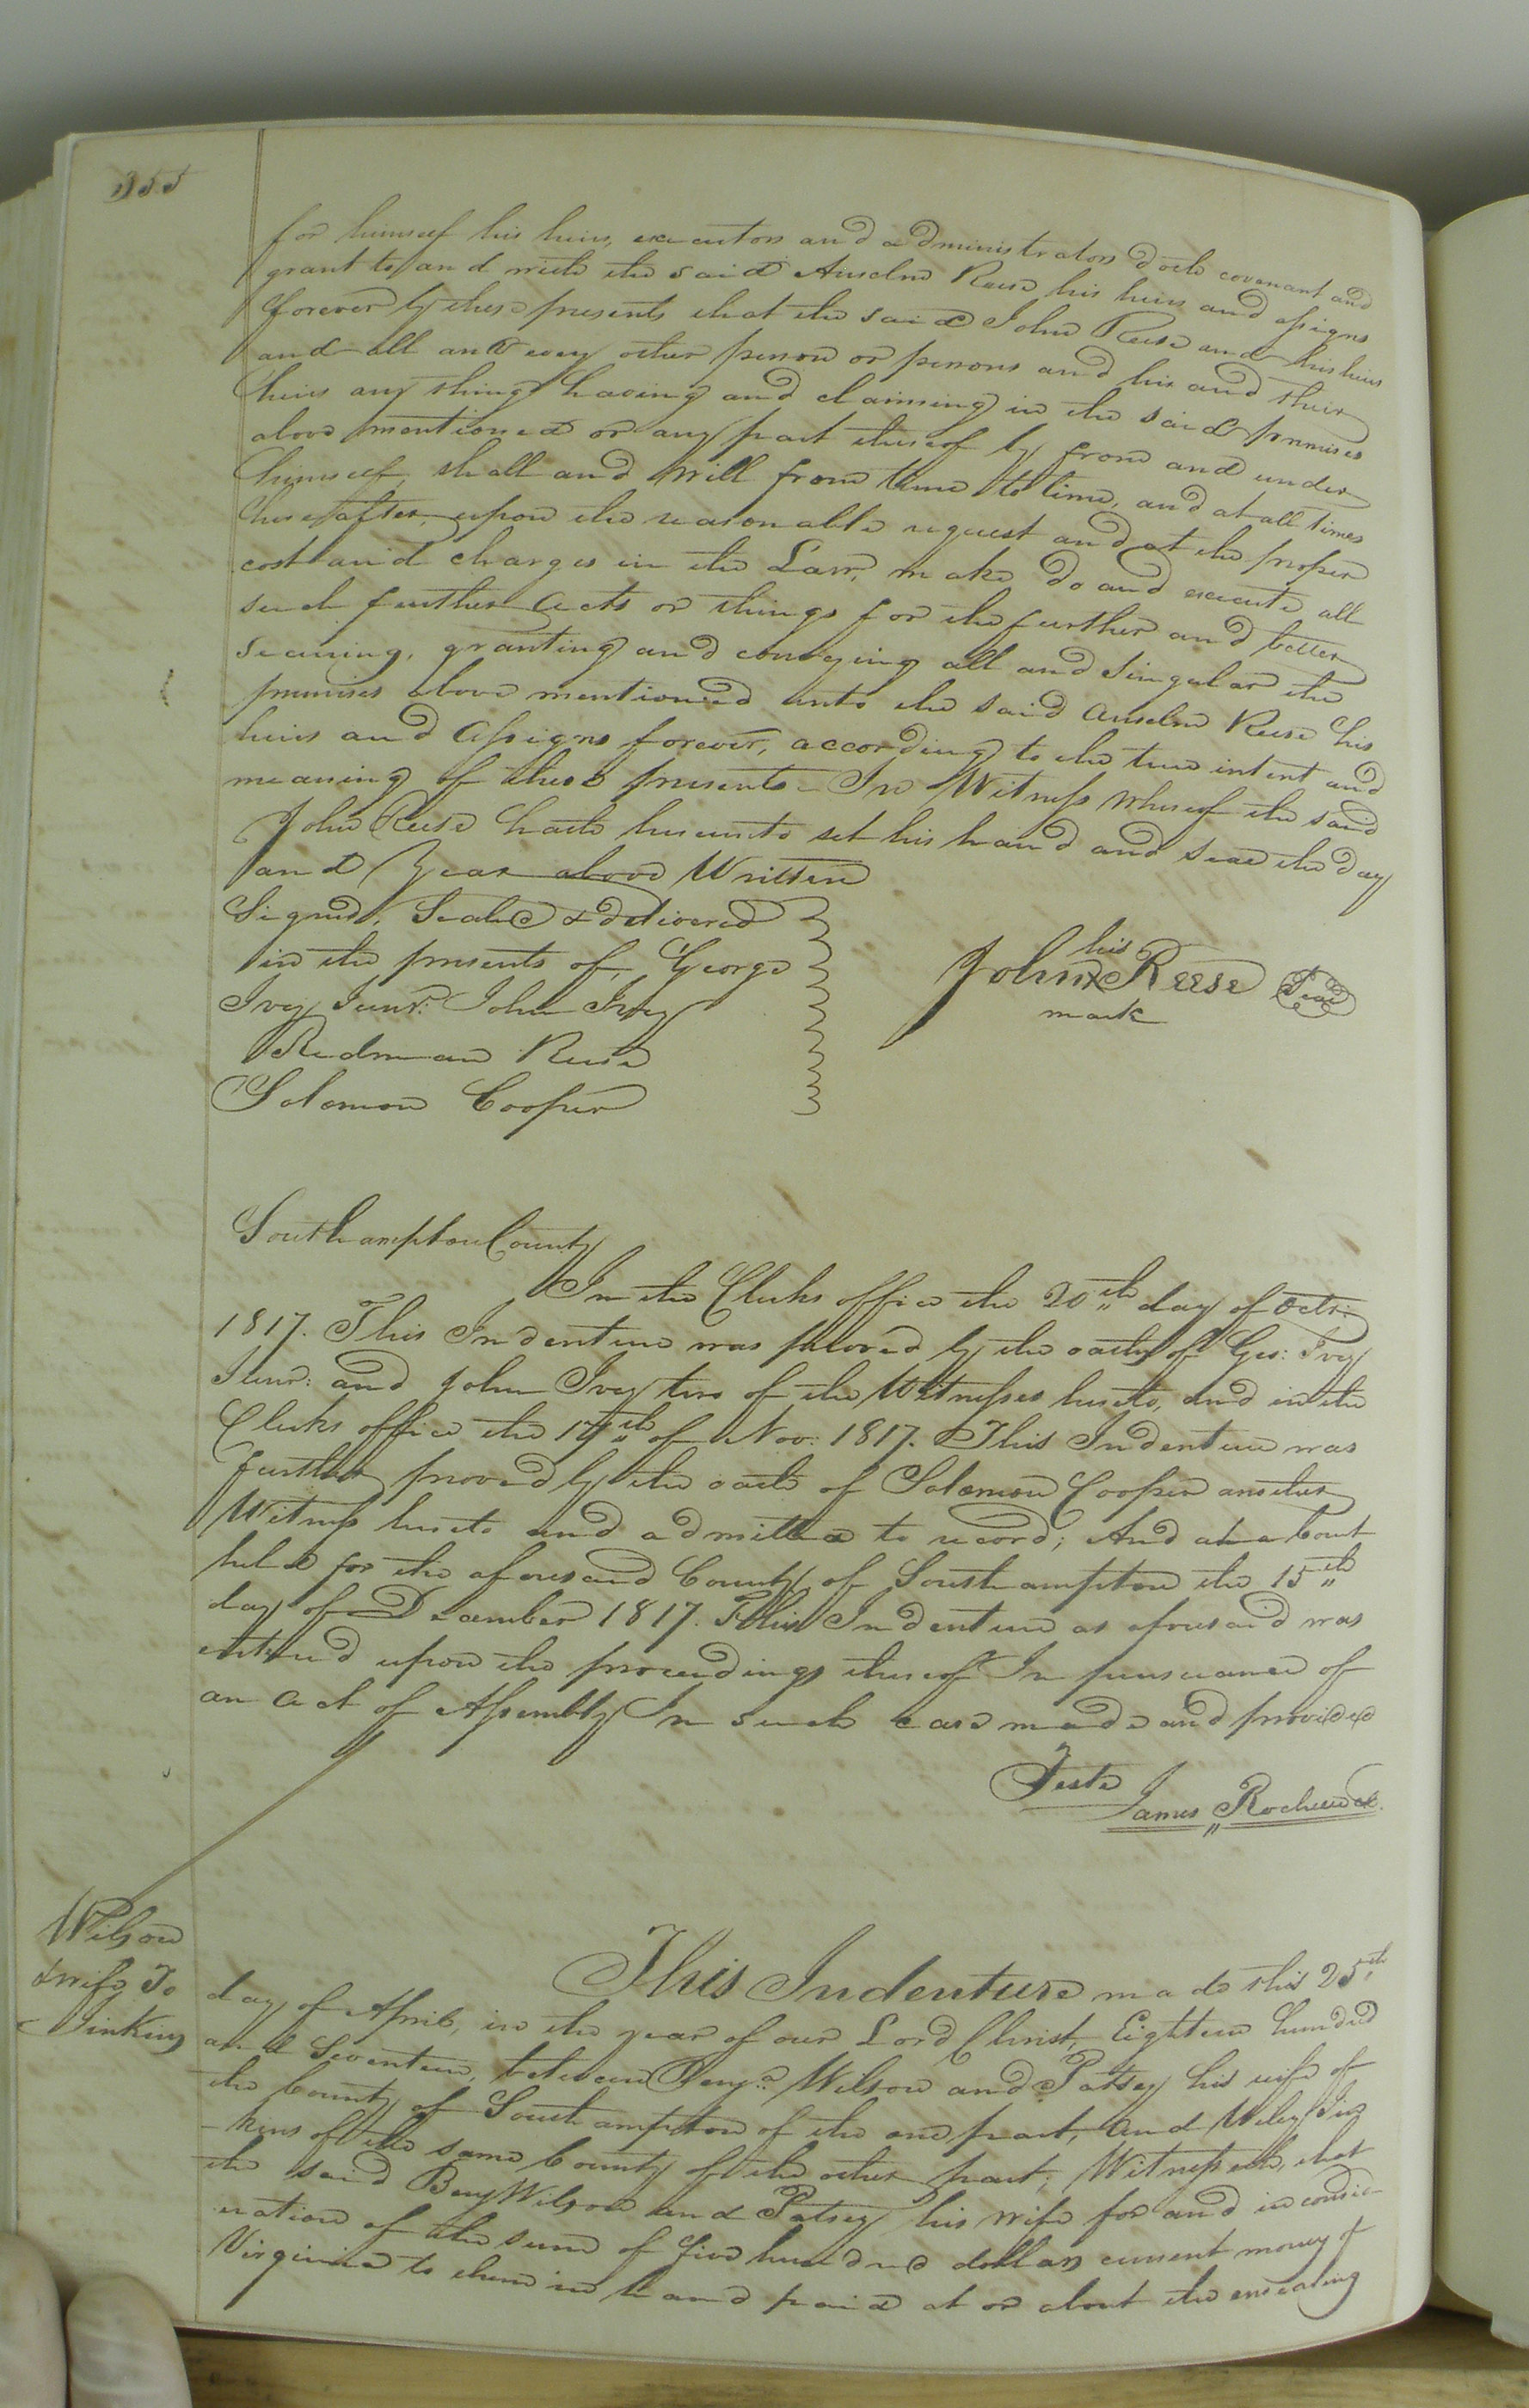 355
for himself his heirs, executors and administrators doth covenant and
grant to and with the said Anselm Reese his heirs and assigns
forever by these presents that the said John Reese and his heirs
and all and every other person or persons and his and their
heirs any thing having and claiming in the said premises
above mentioned or any part thereof by from and under
himself, shall and will from time to time, and at all times
hereafter, upon the reasonable request and at the proper
cost and charges in the Law, make do and execute all
such further acts or things for the further and better
securing, granting and conveying all and Singular the
premises above mentioned unto the said Anselm Reese his
heirs and Assigns forever, according to the true intent and
meaning of these presents - In Witness Whereof the said
John Reese hath hereunto set his hand and seal the day
and Year above Written
Signed, Sealed & delivered
in the presents of, George
Ivey Junr. John Ivey
Redman Reese
Solomon Cooper
his
John x Reese Seal
mark
Southampton County
In the Clerks office the 20th day of Octr:
1817. This Indenture was proved by the oaths of Geo: Ivey
Junr: and John Ivey two of the Witnesses hereto, and in the
Clerks office the 17th of Nov: 1817. This Indenture was
further proved by the oath of Solomon Cooper another
Witness hereto and admitted to record; And at a Court
held for the aforesaid County of Southampton the 15th
day of December 1817. This Indenture as aforesaid was
entered upon the proceedings thereof In pursuance of
an act of Assembly In such case made and provided
Teste
James Rochelle Ck.
Wilson
& wife To
Jinkins
This Indenture made this 25th
day of April, in the year of our Lord Christ, Eighteen hundred
and Seventeen, between Benja. Wilson and Patsey his wife of
the County of Southampton of the one part, and Wiley Jin
-kins of the same County of the other part; Witnesseth, that
the said Benj Wilson and Patsey his wife for and in consid-
eration of the sum of five hundred dollars current money of
Virginia to them in hand paid at or about the ensealing